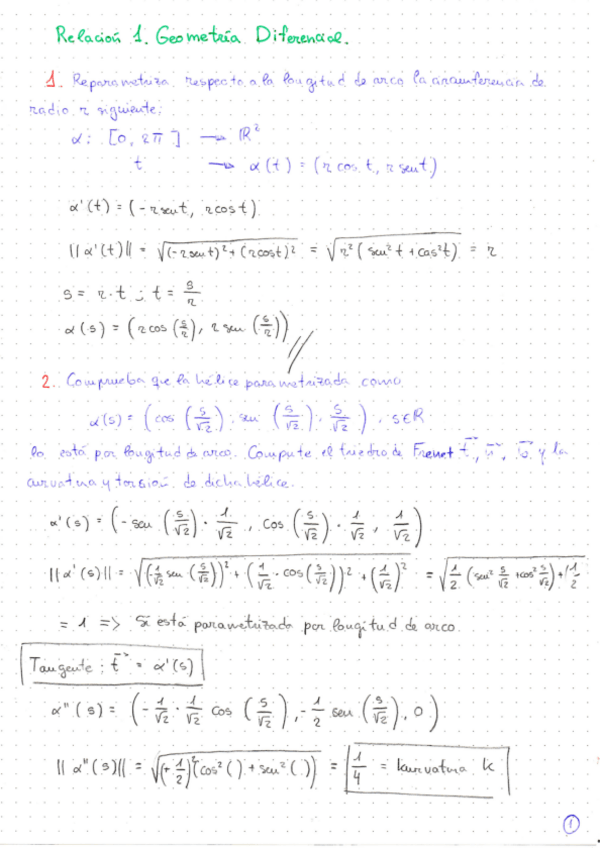 Relación 1. Geometría Diferencial.
1. Reparametriza respecto a la longitud de arco la circunferencia de
radio r siguiente:
α: [0, 2π] → ℝ²
t → α(t) = (r cos t, r sen t)
α'(t) = (-r sen t, r cos t)
||α'(t)|| = √((-r sen t)² + (r cos t)²) = √(r² (sen² t + cos² t)) = r
s = r · t ; t = s/r
α(s) = (r cos (s/r), r sen (s/r)) //
2. Comprueba que la hélice parametrizada como
α(s) = (cos (s/√2), sen (s/√2), s/√2), s∈ℝ
lo está por longitud de arco. Compute el triedro de Frenet t⃗, n⃗, b⃗ y la
curvatura y torsión de dicha hélice.
α'(s) = (-sen (s/√2) · 1/√2, cos (s/√2) · 1/√2, 1/√2)
||α'(s)|| = √((-1/√2 sen (s/√2))² + (1/√2 · cos (s/√2))² + (1/√2)²) = √(1/2 (sen² s/√2 + cos² s/√2) + 1/2)
= 1 => Si está parametrizada por longitud de arco.
Tangente: t⃗ = α'(s)
α''(s) = (-1/√2 · 1/√2 cos (s/√2), -1/2 sen (s/√2), 0)
||α''(s)|| = √((+1/2)² (cos² ( ) + sen² ( ))) = 1/4 = kurvatura k
1